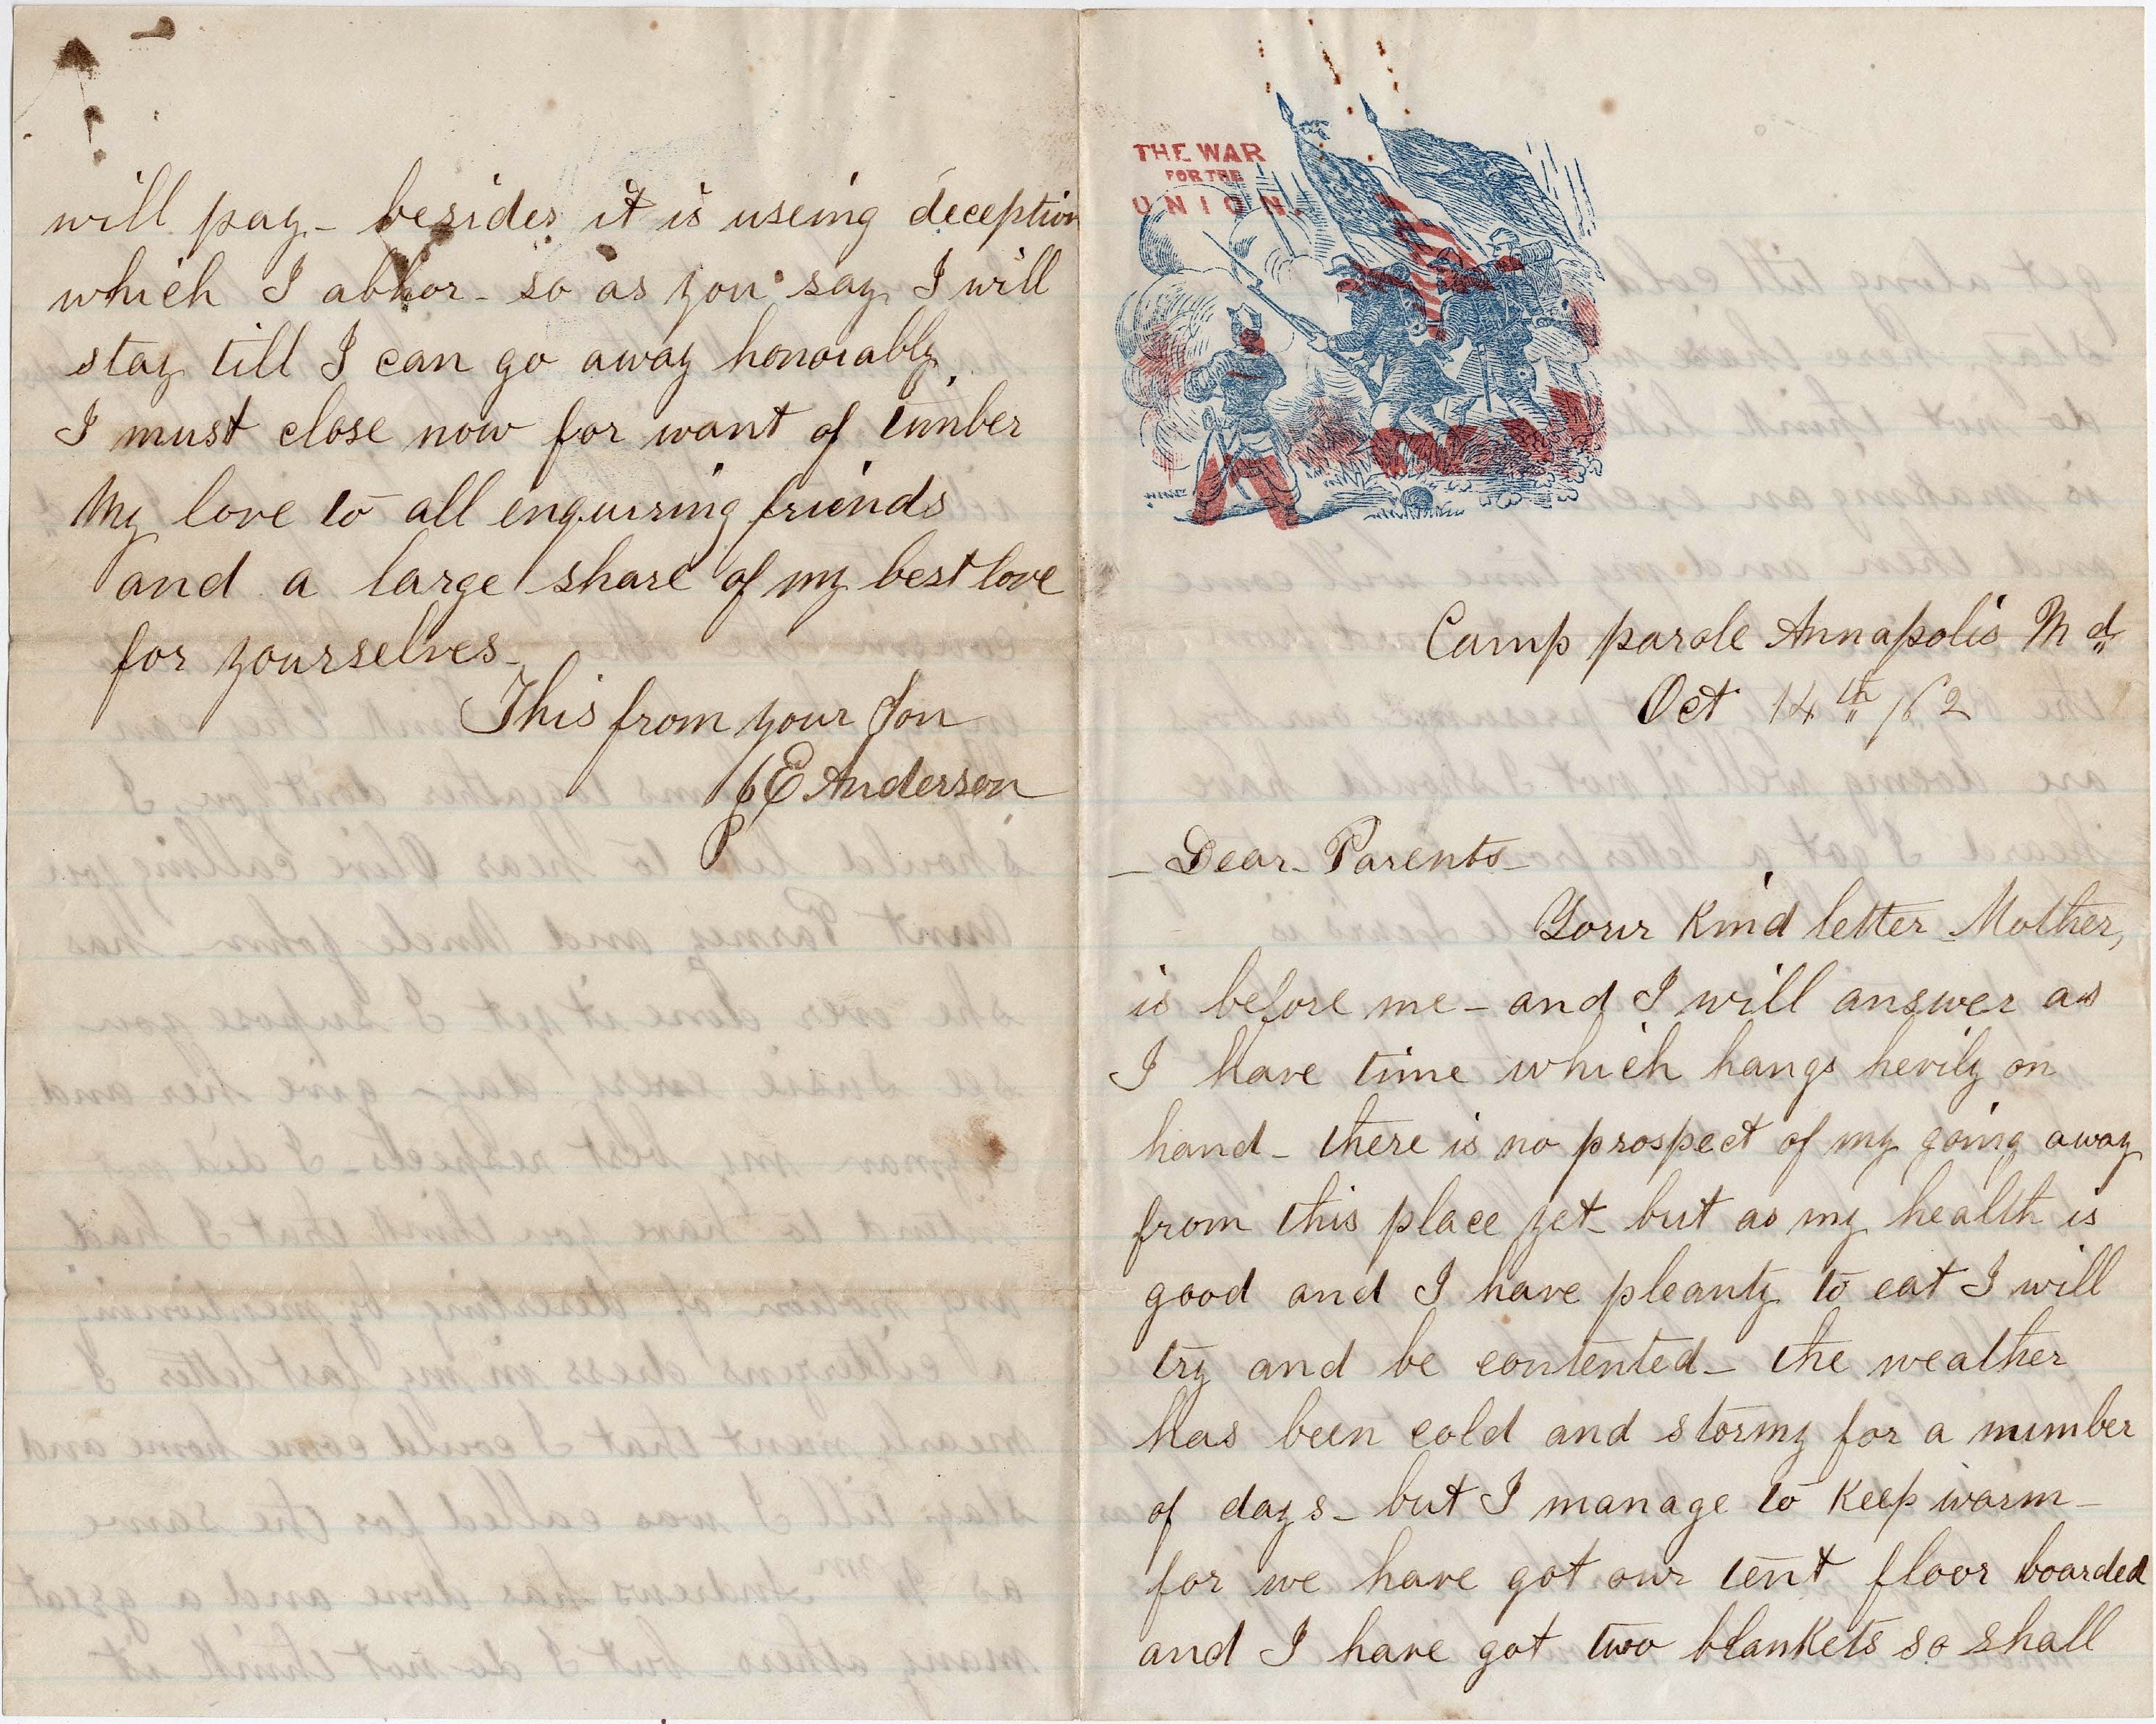 THE WAR
FOR THE
UNION.
Camp parole Annapolis Md
Oct 14th /62
- Dear Parents -
Your kind letter Mother,
is before me - and I will answer as
I have time which hangs hevily on
hand - there is no prospect of my going away
from this place yet - but as my health is
good and I have pleanty to eat I will
try and be contented - the weather
has been cold and stormy for a number
of days - but I manage to keep warm -
for we have got our tent floor boarded
and I have got two blankets so shall
will pay - besides it is useing deception
which I abhor - so as you say I will
stay till I can go away honorably.
I must close now for want of timber
My love to all enquiring friends
and a large share of my best love
for yourselves -
This from your Son
J E Anderson